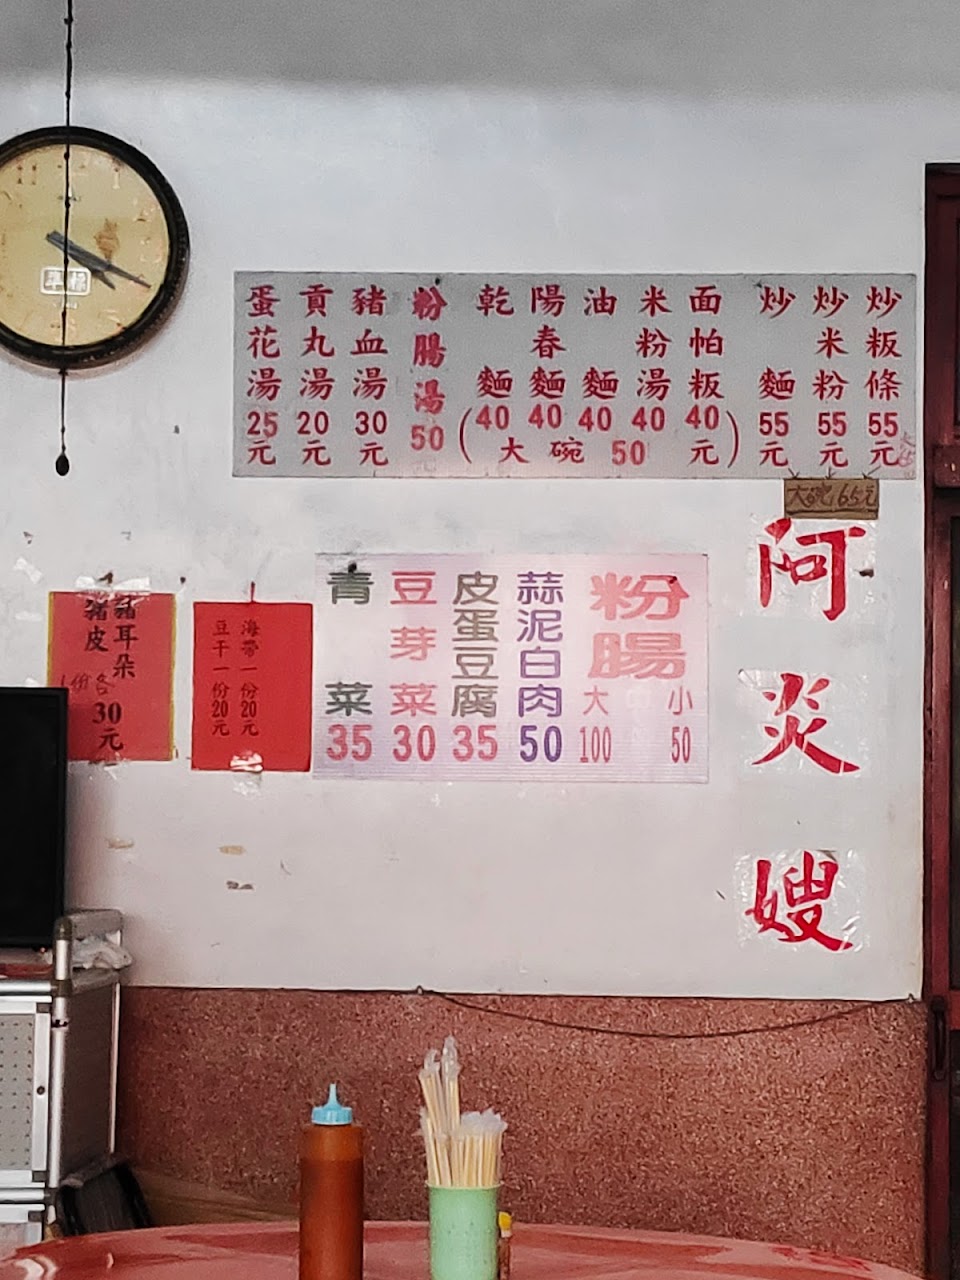 炒粄條 55元
炒米粉 55元
炒麵 55元
面帕粄 40
米粉湯 40
油麵 40
陽春麵 40
乾麵 40
(大碗 50 元)
粉腸湯 50
豬血湯 30元
貢丸湯 20元
蛋花湯 25元
大碗65元
阿炎嫂
粉腸
大 中 小
100 50
蒜泥白肉 50
皮蛋豆腐 35
豆芽菜 30
青菜 35
海帶一份20元
豆干一份20元
豬耳朵
豬皮
各
1份
30元